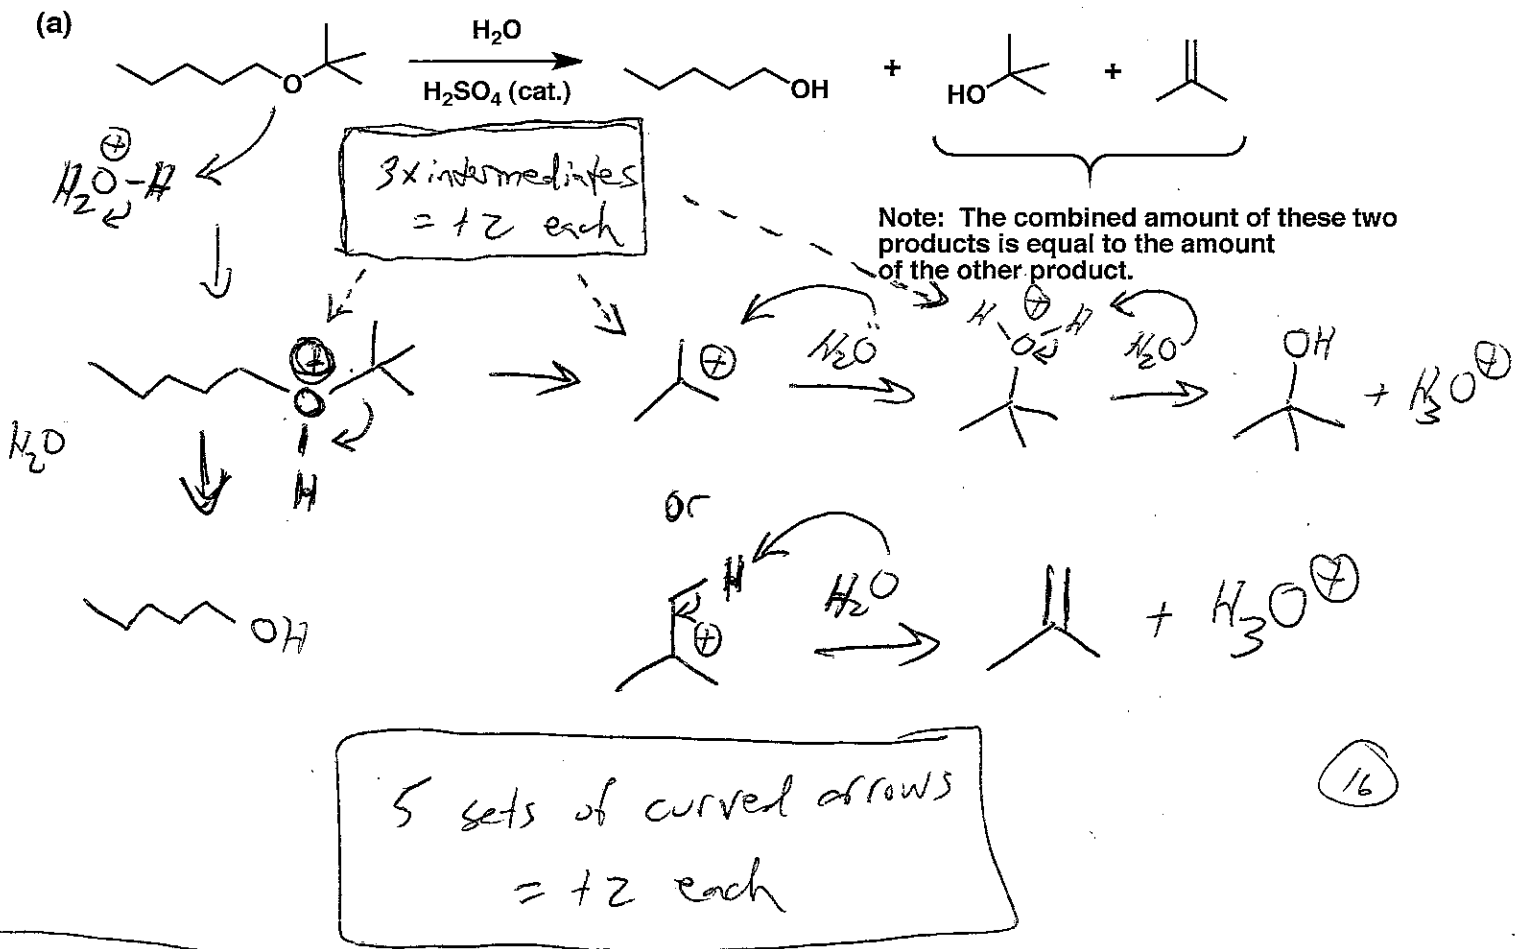 (a)
H₂O
H₂SO₄ (cat.)
O
OH
+
HO
+
H₂O-H
⊕
3x intermediates
= +2 each
Note: The combined amount of these two
products is equal to the amount
of the other product.
⊕
O
H
H₂O
⊕
H₂Ö
H
⊕
H
O
H₂O
OH
+ H₃O⊕
OH
or
H
⊕
H₂O
+ H₃O⊕
5 sets of curved arrows
= +2 each
16